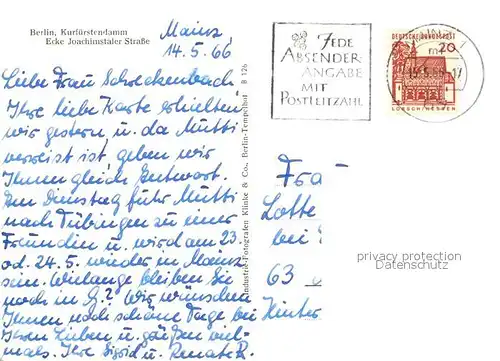 Berlin, Kurfürstendamm
Ecke Joachimstaler Straße
Mainz,
14.5.66
Liebe Frau Schreckenbach.
Ihre liebe Karte erhielten
wir gestern u. da Mutti
verreist ist, geben wir
Ihnen gleich Antwort.
Am Dienstag fuhr Mutti
nach Tübingen zu einer
Freundin u. wird am 23.
od. 24.5. wieder in Mainz
sein. Wielange bleiben Sie
noch in G.? Wir wünschen
Ihnen noch schöne Tage bei
Ihren Lieben u. grüßen viel-
mals. Ihre Sigrid u. Renate R.
Industrie-Fotografen Klinke & Co., Berlin-Tempelhof B 126
JEDE
ABSENDER-
ANGABE
MIT
POSTLEITZAHL
DEUTSCHE BUNDESPOST
20
LORSCH/HESSEN
Frau
Lotte
bei
63
Hinter
privacy protection
Datenschutz